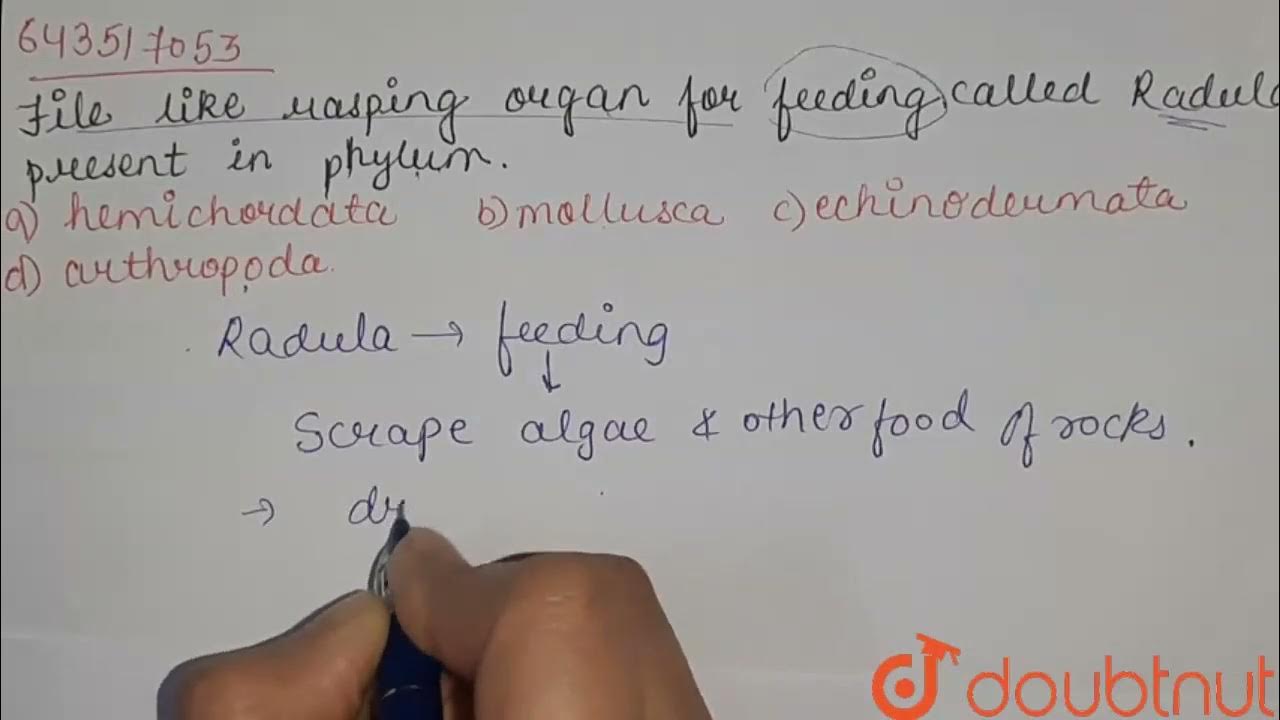 643517053
File like rasping organ for feeding, called Radula
present in phylum.
a) hemichordata b) mollusca c) echinodermata
d) arthropoda.
Radula → feeding
↓
Scrape algae & other food of rocks.
→ dr
doubtnut